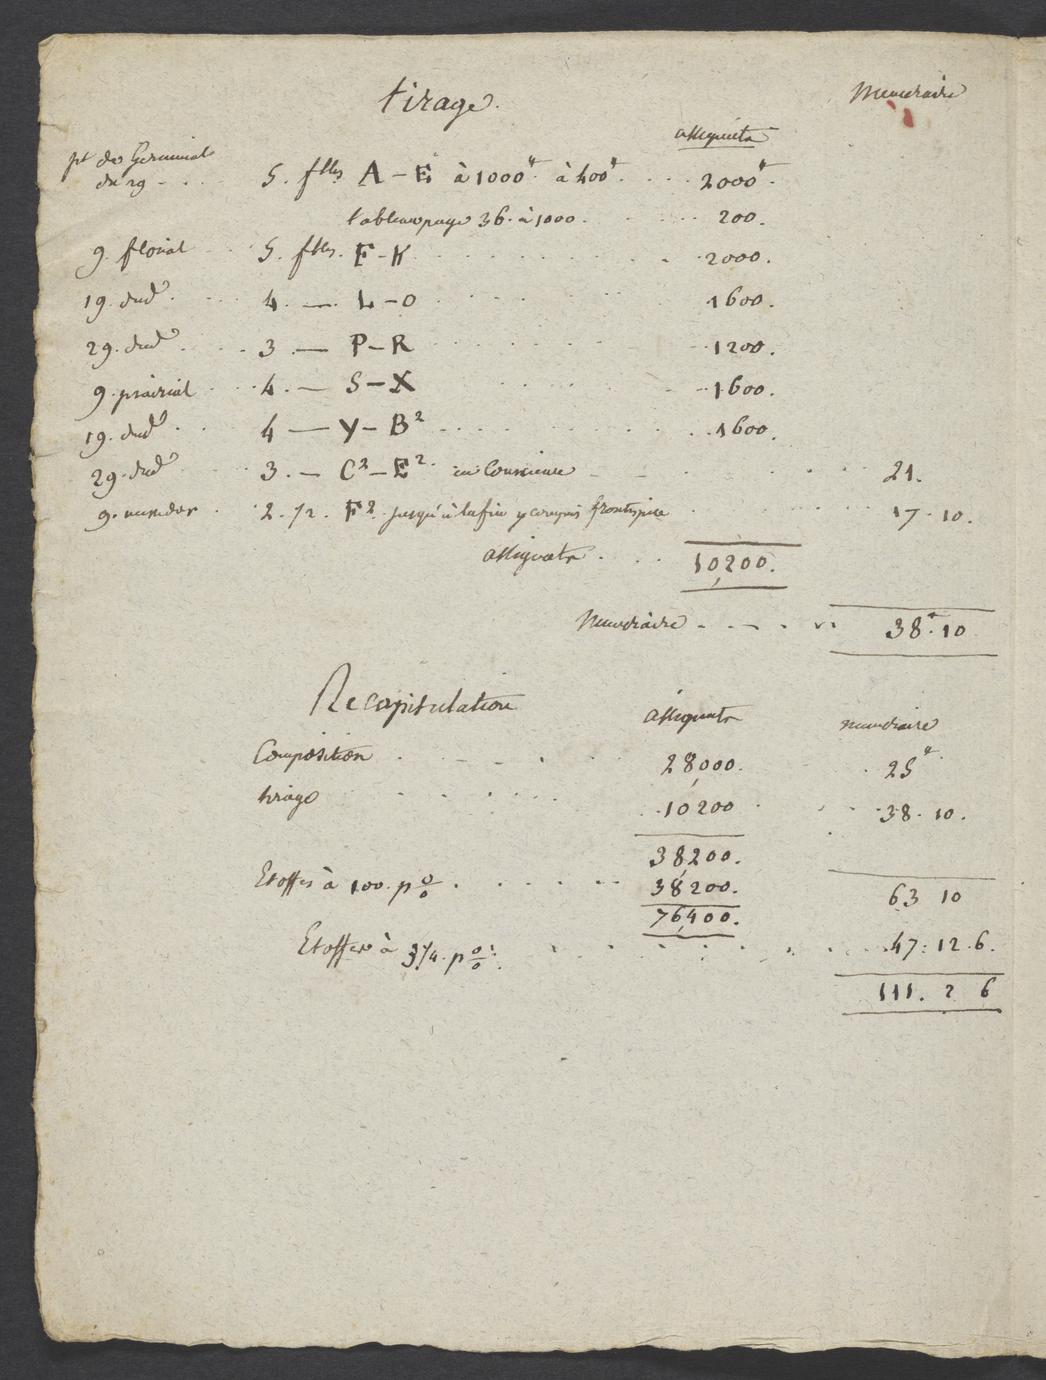 tirage. numeraire
assignats
pt de Germinal
du 29 - . . 5. flles A – E à 1000ᵗᵗ. à 400ᵗᵗ. . . . 2000ᵗᵗ.
tableau page 36. à 1000. . . . 200.
9. floreal . . 5. flles. F - K . . . . 2000.
19. dud. . . . 4. — L - O . . . . 1600.
29. dud. . . . 3. — P – R . . . . 1200.
9. prairial . . 4. — S – X . . . . 1600.
19. dud. . . 4 — Y – B² . . . . 1600.
29. dud. . . 3. — C² – E². . . . 21.
9. messidor . . 2. 1/2. F². jusqu'à la fin y compris frontispice . . . . 17. 10.
assignats . . . 10,200.
Numeraire - . - . . 38ᵗᵗ. 10
Recapitulation assignats numeraire
Composition . . . . 28,000. . . 25ᵗᵗ
tirage . . . . 10200 . . . 38. 10.
38,200.
Etoffes à 100. p % . . . . 38200. 63 10
76,400.
Etoffes à 3/4. p % : . . . . 47: 12. 6.
111. 2 6